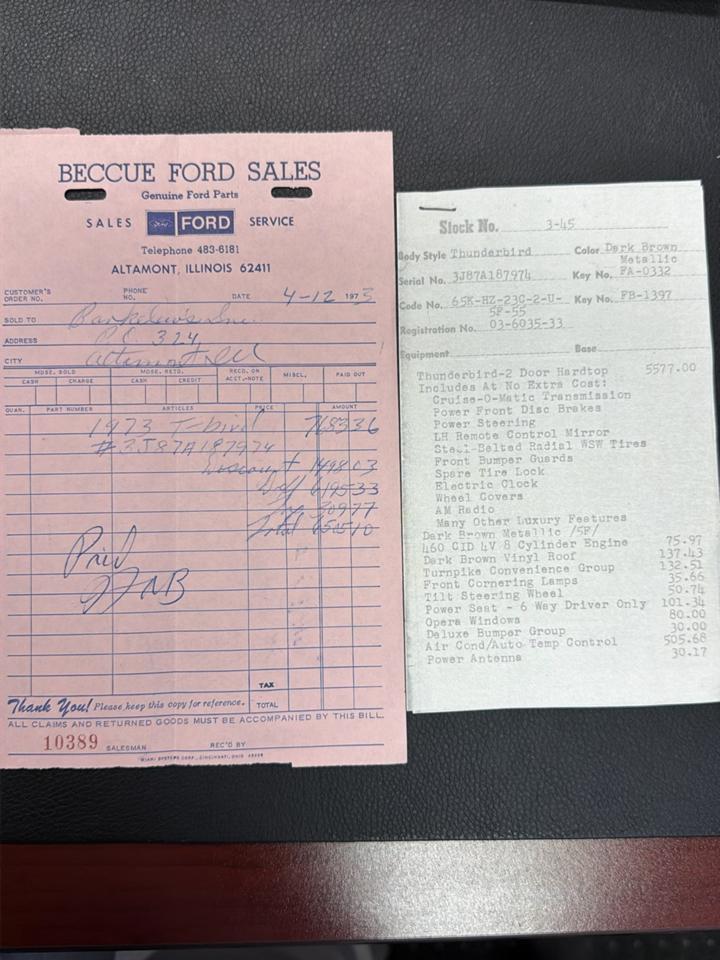 BECCUE FORD SALES
Genuine Ford Parts
SALES Ford FORD SERVICE
Telephone 483-6181
ALTAMONT, ILLINOIS 62411
CUSTOMER'S ORDER NO. PHONE NO. DATE 4-12 1973
SOLD TO Inc
ADDRESS 324
CITY Altamont Ill
MDSE. SOLD MDSE. RETD. REC'D. ON ACCT.-NOTE MISCL. PAID OUT
CASH CHARGE CASH CREDIT
QUAN. PART NUMBER ARTICLES PRICE AMOUNT
1973 T-bird 7683 36
#3J87A187974
Discount 1498 03
Diff 6195 33
Tax 309 77
Total 6505 10
Paid
FNB
TAX
Thank You! Please keep this copy for reference. TOTAL
ALL CLAIMS AND RETURNED GOODS MUST BE ACCOMPANIED BY THIS BILL.
10389 SALESMAN REC'D BY
MIAMI SYSTEMS CORP., CINCINNATI, OHIO
Stock No. 3-45
Body Style Thunderbird Color Dark Brown
Metallic
Serial No. 3J87A187974 Key No. FA-0332
Code No. 65K-HZ-23C-2-U- Key No. FB-1397
5F-55
Registration No. 03-6035-33
Equipment Base
Thunderbird-2 Door Hardtop 5577.00
Includes At No Extra Cost:
Cruise-O-Matic Transmission
Power Front Disc Brakes
Power Steering
LH Remote Control Mirror
Steel-Belted Radial WSW Tires
Front Bumper Guards
Spare Tire Lock
Electric Clock
Wheel Covers
AM Radio
Many Other Luxury Features
Dark Brown Metallic /5F/
460 CID 4V 8 Cylinder Engine 75.97
Dark Brown Vinyl Roof 137.43
Turnpike Convenience Group 132.51
Front Cornering Lamps 35.66
Tilt Steering Wheel 50.74
Power Seat - 6 Way Driver Only 101.34
Opera Windows 80.00
Deluxe Bumper Group 30.00
Air Cond/Auto Temp Control 505.68
Power Antenna 30.17